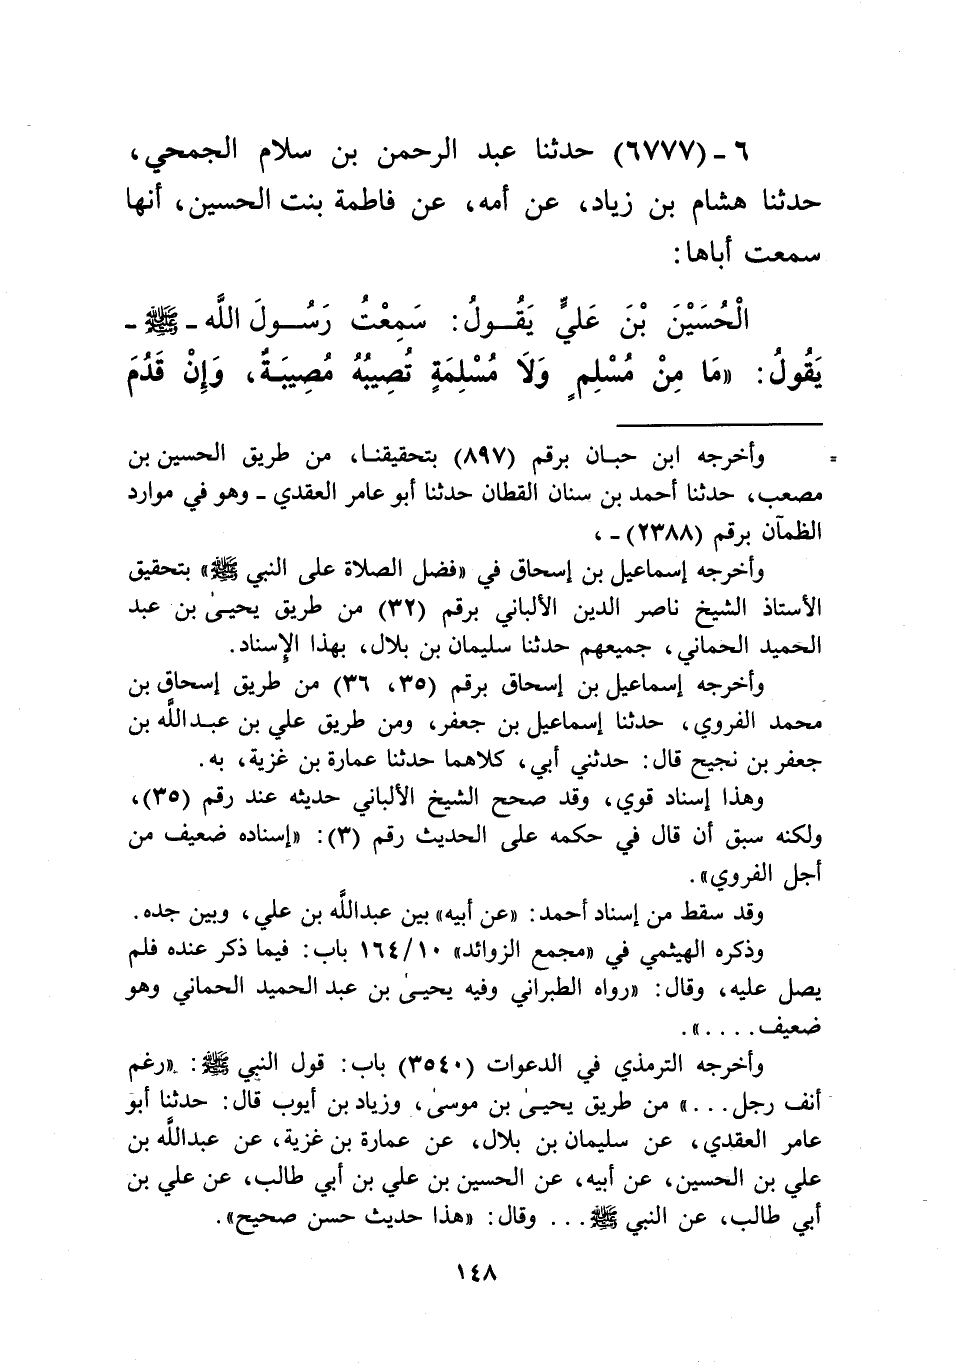 ٦ - (٦٧٧٧) حدثنا عبد الرحمن بن سلام الجمحي،
حدثنا هشام بن زياد، عن أمه، عن فاطمة بنت الحسين، أنها
سمعت أباها:
الْحُسَيْنَ بْنَ عَلِيٍّ يَقُولُ: سَمِعْتُ رَسُولَ اللَّه - ﷺ -
يَقُولُ: «مَا مِنْ مُسْلِمٍ وَلَا مُسْلِمَةٍ تُصِيبُهُ مُصِيبَةٌ، وَإِنْ قَدُمَ
= وأخرجه ابن حبان برقم (٨٩٧) بتحقيقنا، من طريق الحسين بن
مصعب، حدثنا أحمد بن سنان القطان حدثنا أبو عامر العقدي - وهو في موارد
الظمآن برقم (٢٣٨٨) - ،
وأخرجه إسماعيل بن إسحاق في «فضل الصلاة على النبي ﷺ» بتحقيق
الأستاذ الشيخ ناصر الدين الألباني برقم (٣٢) من طريق يحيىٰ بن عبد
الحميد الحماني، جميعهم حدثنا سليمان بن بلال، بهذا الإسناد.
وأخرجه إسماعيل بن إسحاق برقم (٣٥، ٣٦) من طريق إسحاق بن
محمد الفروي، حدثنا إسماعيل بن جعفر، ومن طريق علي بن عبداللَّه بن
جعفر بن نجيح قال: حدثني أبي، كلاهما حدثنا عمارة بن غزية، به.
وهذا إسناد قوي، وقد صحح الشيخ الألباني حديثه عند رقم (٣٥)،
ولكنه سبق أن قال في حكمه على الحديث رقم (٣): «إسناده ضعيف من
أجل الفروي».
وقد سقط من إسناد أحمد: «عن أبيه» بين عبداللَّه بن علي، وبين جده.
وذكره الهيثمي في «مجمع الزوائد» ١٠/١٦٤ باب: فيما ذكر عنده فلم
يصل عليه، وقال: «رواه الطبراني وفيه يحيىٰ بن عبد الحميد الحماني وهو
ضعيف....».
وأخرجه الترمذي في الدعوات (٣٥٤٠) باب: قول النبي ﷺ: «رغم
أنف رجل...» من طريق يحيىٰ بن موسىٰ، وزياد بن أيوب قال: حدثنا أبو
عامر العقدي، عن سليمان بن بلال، عن عمارة بن غزية، عن عبداللَّه بن
علي بن الحسين، عن أبيه، عن الحسين بن علي بن أبي طالب، عن علي بن
أبي طالب، عن النبي ﷺ... وقال: «هذا حديث حسن صحيح».
١٤٨